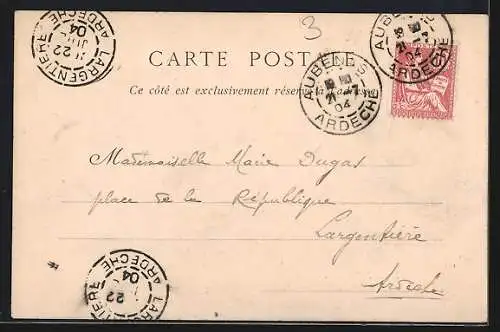 3
LARGENTIERE
22
04
ARDECHE
CARTE POSTALE
AUBENAS
21
04
ARDECHE
AUBENAS
21
04
ARDECHE
Ce côté est exclusivement réservé à l'adresse
Mademoiselle Marie Dugas
place de la République
Largentière
Ardèche
LARGENTIERE
22
04
ARDECHE